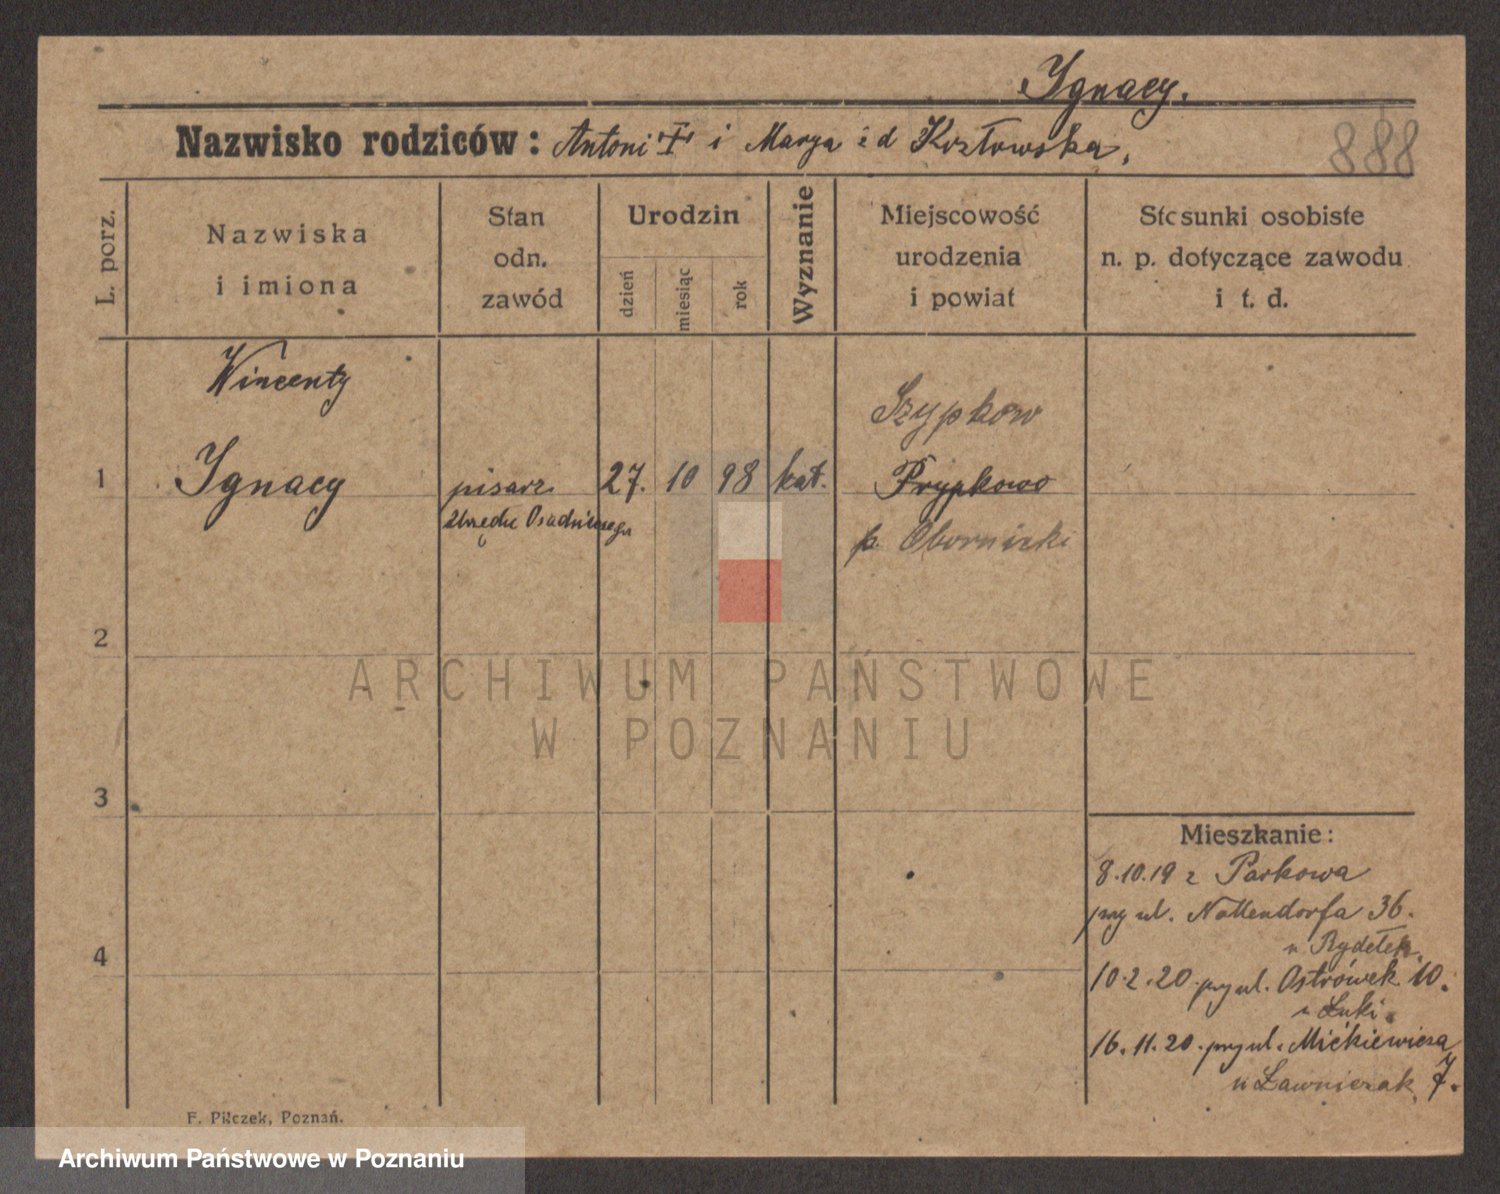 Ignacy.
Nazwisko rodziców: Antoni † i Marya z d Kozłowska,
888
L. porz.
Nazwiska
i imiona
Stan
odn.
zawód
Urodzin
dzień
miesiąc
rok
Wyznanie
Miejscowość
urodzenia
i powiat
Stosunki osobiste
n. p. dotyczące zawodu
i t. d.
Wincenty
Szypkow
1 Ignacy pisarz 27. 10 98 kat. Prypkowo
Urzędu Osadniczego
p. Obornicki
2
3
4
Mieszkanie:
8.10.19 z Parkowa
przy ul. Nollendorfa 36.
u Rydełek.
10.2.20. przy ul. Ostrówek 10.
u Łuki.
16.11.20. przy ul. Mickiewicza
u Ławniczak 7.
F. Pilczek, Poznań.
ARCHIWUM PAŃSTWOWE
W POZNANIU
Archiwum Państwowe w Poznaniu